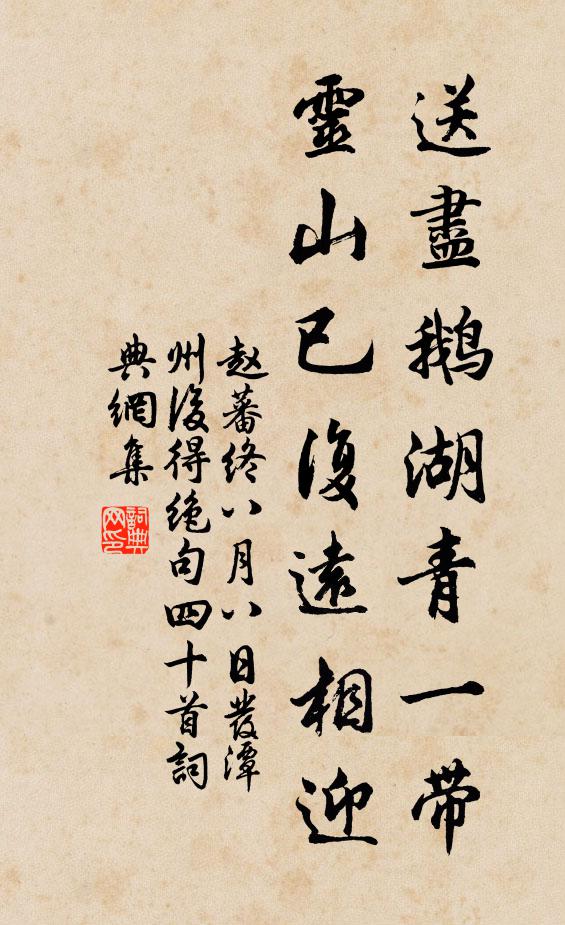 送盡鵝湖青一带
靈山已復遠相迎
赵蕃终八月八日發潭
州後得绝句四十首詞
典網集
詞典
网印